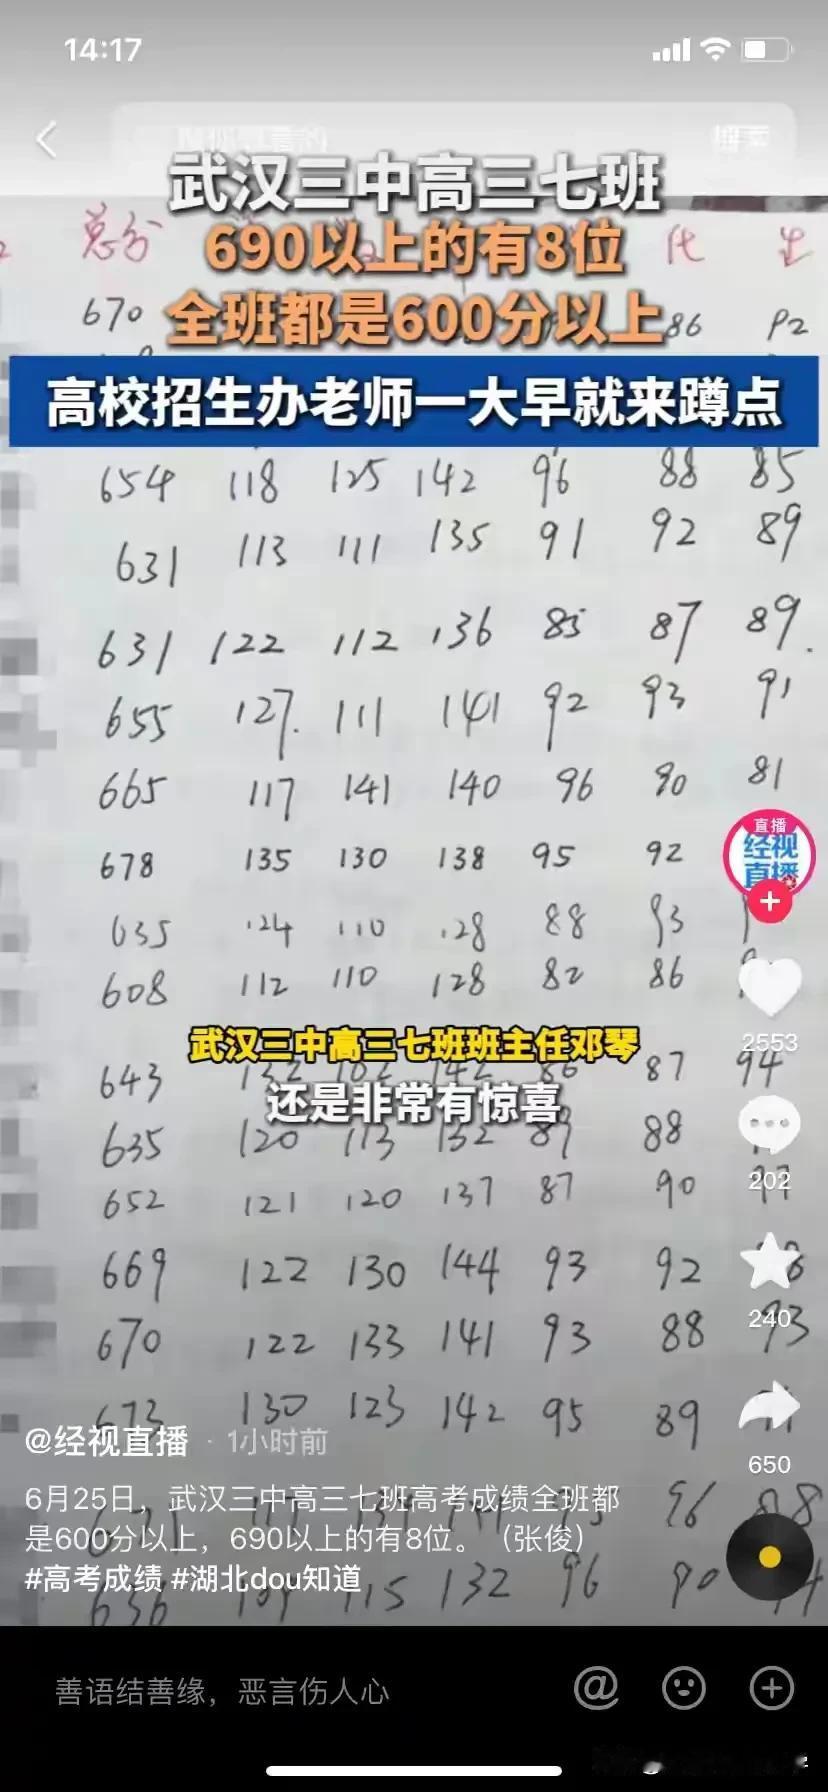 14:17
武汉三中高三七班
总分
690以上的有8位
化 生
670
全班都是600分以上
86 92
高校招生办老师一大早就来蹲点
654 118 125 142 96 88 85
631 113 111 135 91 92 89
631 122 112 136 85 87 89.
655 127. 111 141 92 93 91
665 117 141 140 96 90 81
直播
经视
直播
678 135 130 138 95 92
635 124 110 128 88 93
608 112 110 128 82 86
2553
武汉三中高三七班班主任邓琴
643 87 94
还是非常有惊喜
635 120 113 132 89 88
202
652 121 120 137 87 90
669 122 130 144 93 92
240
670 122 133 141 93 88 93
673 130 123 142 95 89
@经视直播 · 1小时前
650
6月25日，武汉三中高三七班高考成绩全班都
96 88
是600分以上，690以上的有8位。（张俊）
#高考成绩 #湖北dou知道
636 115 132 96 90
善语结善缘，恶言伤人心